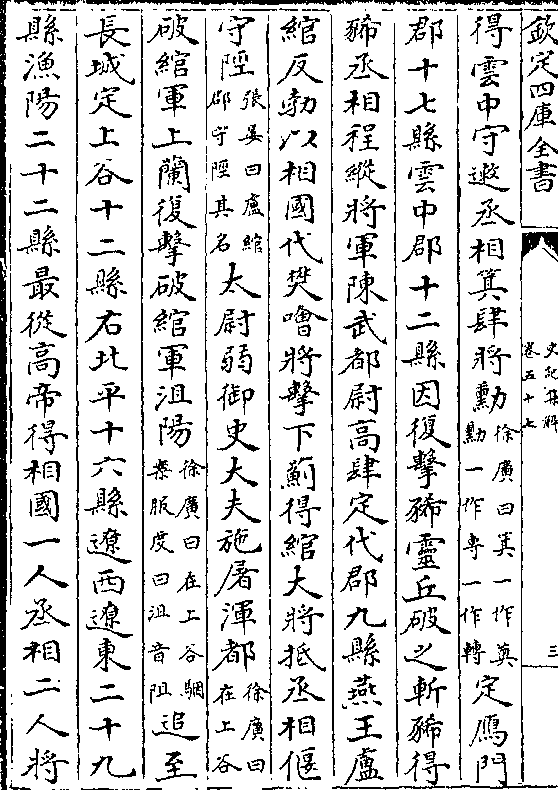 欽定四庫全書
史記集解
卷五十七
三
得雲中守遫丞相箕肆將勳徐廣曰箕一作䔇勳一作專一作轉定鴈門
郡十七縣雲中郡十二縣因復擊豨靈丘破之斬豨得
豨丞相程縱將軍陳武都尉高肆定代郡九縣燕王盧
綰反勃以相國代樊噲將擊下薊得綰大將抵丞相偃
守陘張晏曰盧綰郡守陘其名太尉弱御史大夫施屠渾都徐廣曰在上谷
破綰軍上蘭復擊破綰軍沮陽徐廣曰在上谷駰案服虔曰沮音阻追至
長城定上谷十二縣右北平十六縣遼西遼東二十九
縣漁陽二十二縣最從高帝得相國一人丞相二人將